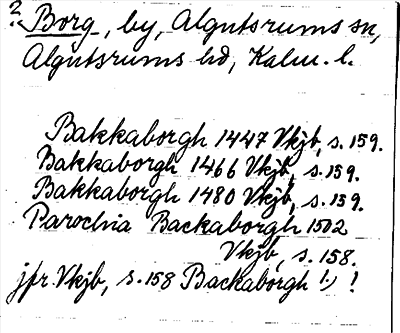 ? Borg, by, Algutsrums sn,
Algutsrums hd, Kalm. l.
Bakkaborgh 1447 Vkjb, s. 159.
Bakkaborgh 1466 Vkjb, s. 159.
Bakkaborgh 1480 Vkjb, s. 159.
Parochia Backaborgh 1502
Vkjb, s. 158.
jfr. Vkjb, s. 158 Backaborgh !) !